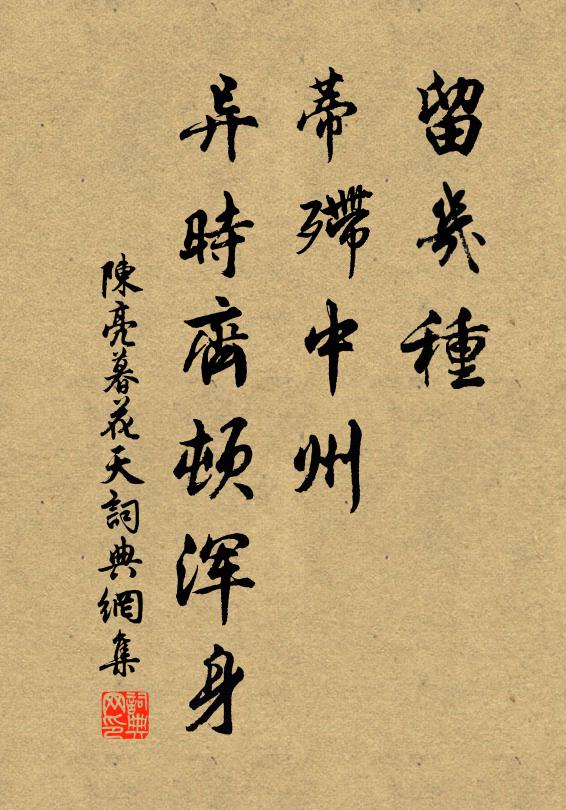 留幾種
蒂殢中州
异時齊頓渾身
陳亮暮花天詞典網集
詞典网印